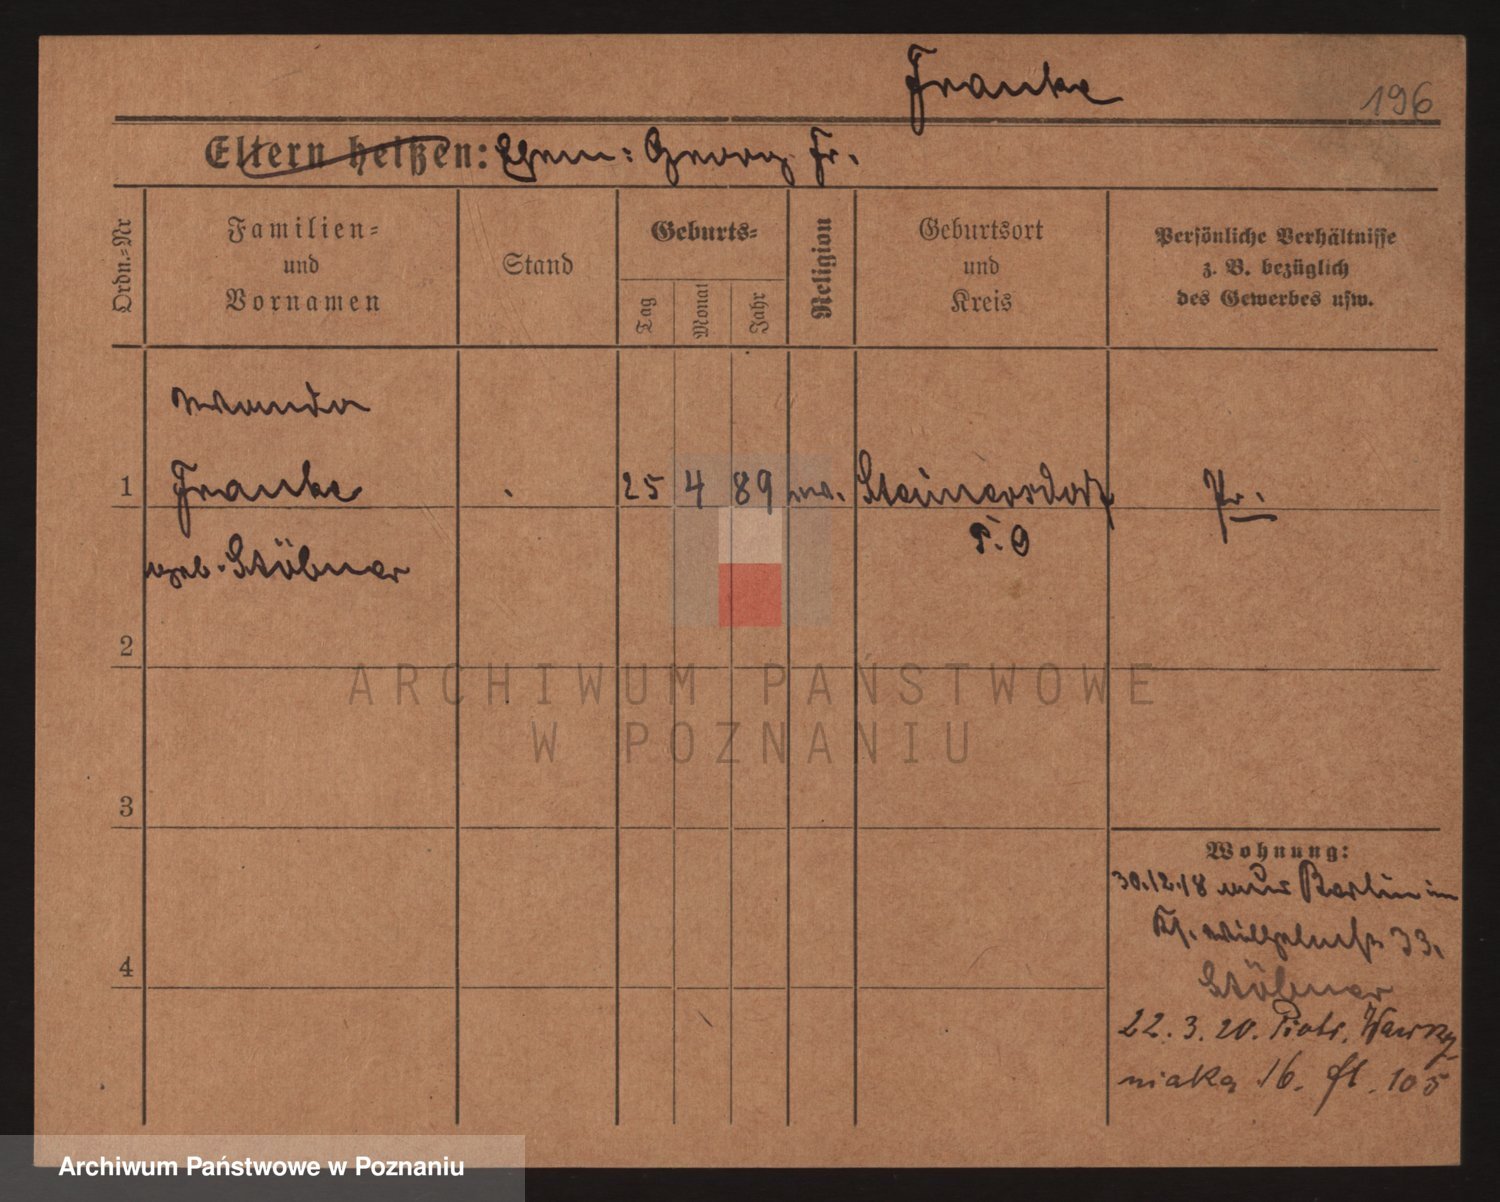 Franke
196
Eltern heißen: Ehem: Georg Fr.
Ordn.-Nr
Familien-
und
Vornamen
Stand
Geburts-
Tag
Monat
Jahr
Religion
Geburtsort
und
Kreis
Persönliche Verhältnisse
z. B. bezüglich
des Gewerbes usw.
Wanda
1 Franke 25 4 89 ev. Steinersdorf Pr.
geb. Stöbner
2
ARCHIWUM PAŃSTWOWE
W POZNANIU
3
Wohnung:
30.12.18 aus Berlin
Wilhelmstr 33.
4
Stöbner
22.3.20. Piotr. Wawrzy
niaka 16. fl. 105
Archiwum Państwowe w Poznaniu